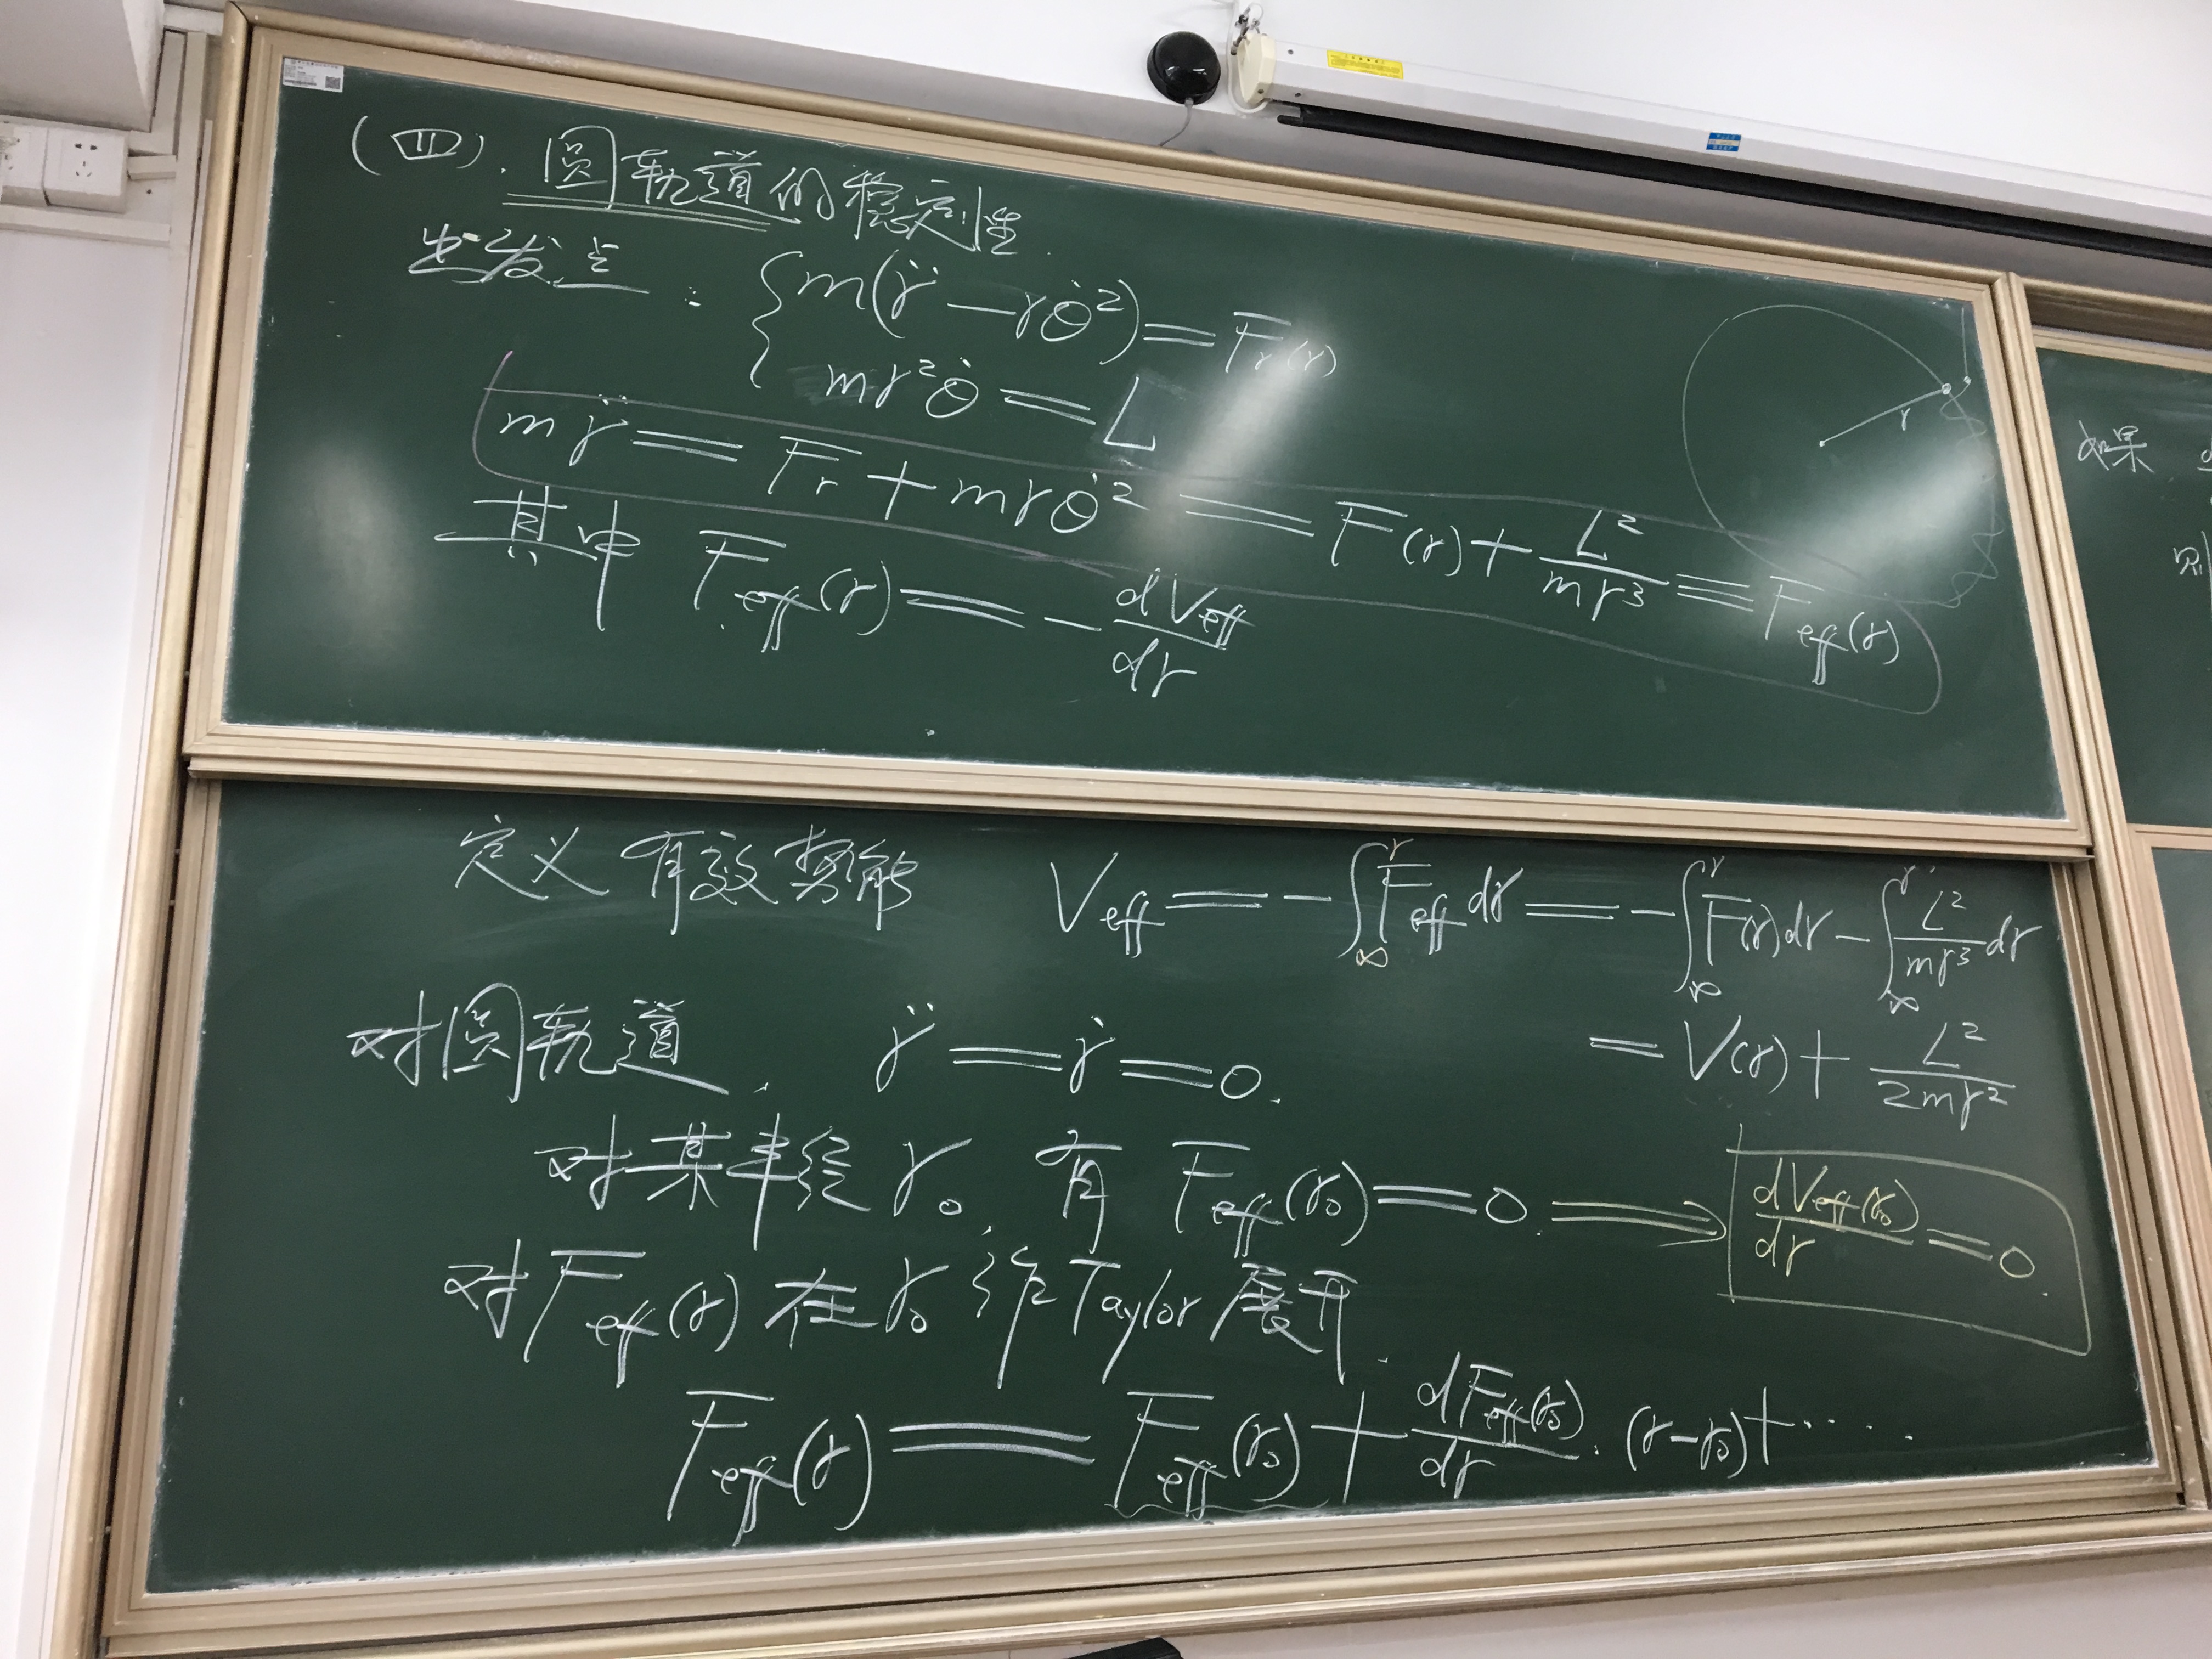 (四). 圆轨道的稳定性.
出发点: { m(r̈ − rθ̇²) = Fr(r)
mr²θ̇ = L
mr̈ = Fr + mrθ̇² = F(r) + L²/mr³ ≡ Feff(r)
其中 Feff(r) = − dVeff/dr
r
定义 有效势能 Veff = −∫_∞^r Feff dr = −∫_∞^r F(r)dr − ∫_∞^r L²/mr³ dr
= V(r) + L²/2mr²
对圆轨道. r̈ = ṙ = 0.
对某半径 r₀, 有 Feff(r₀) = 0. ⟹ dVeff(r₀)/dr = 0.
对 Feff(r) 在 r₀ 作 Taylor 展开.
Feff(r) = Feff(r₀) + dFeff(r₀)/dr · (r−r₀) + ⋯
如果
则